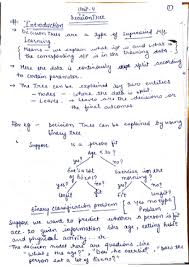 Unit-4
①
Decision Tree
Introduction
Decision Trees are a type of Supervised M/c
Learning
Means we explain what i/p is and what is
the corresponding o/p is in the training data
Here the data is continuously split according
to certain parameter.
The Decision Tree can be explained by two entities
- Nodes - where the data is split
- Leaves - leaves are the decisions or
the final outcomes
For eg - Decision Trees can be explained by using
binary tree
Suppose Is a person fit
age < 30 ?
yes? no?
Eat's lot
of Pizza's?
Exercise in the
morning?
yes? no? yes? no?
Unfit fit fit Unfit
Binary Classification problem [a yes no type]
Problem
Suppose we want to predict whether a person is fit
acc. to given information like age, eating habit
and physical activity etc.
The decision nodes are questions like
"What's the age?", "Does he exercise?", "Does the
person eat a lot of pizzas?"